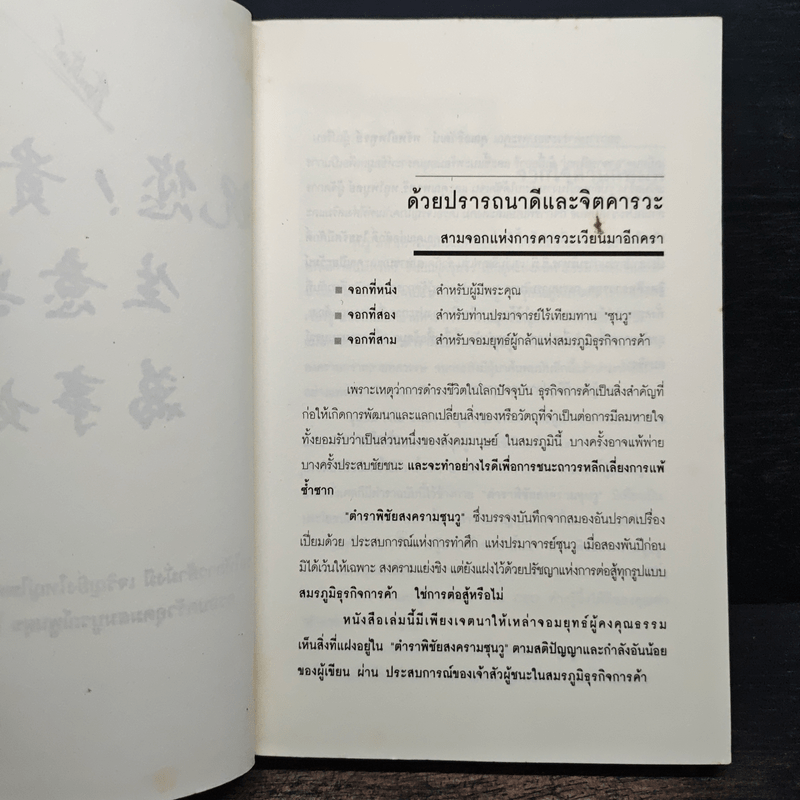 祝您！貴
生意興
萬事如
ด้วยปรารถนาดีและจิตคารวะ
สามจอกแห่งการคารวะเวียนมาอีกครา
■ จอกที่หนึ่ง สำหรับผู้มีพระคุณ
■ จอกที่สอง สำหรับท่านปรมาจารย์ไร้เทียมทาน "ซุนวู"
■ จอกที่สาม สำหรับจอมยุทธ์ผู้กล้าแห่งสมรภูมิธุรกิจการค้า
เพราะเหตุว่าการดำรงชีวิตในโลกปัจจุบัน ธุรกิจการค้าเป็นสิ่งสำคัญที่
ก่อให้เกิดการพัฒนาและแลกเปลี่ยนสิ่งของหรือวัตถุที่จำเป็นต่อการมีลมหายใจ
ทั้งยอมรับว่าเป็นส่วนหนึ่งของสังคมมนุษย์ ในสมรภูมินี้ บางครั้งอาจแพ้พ่าย
บางครั้งประสบชัยชนะ และจะทำอย่างไรดีเพื่อการชนะถาวรหลีกเลี่ยงการแพ้
ซ้ำซาก
"ตำราพิชัยสงครามซุนวู" ซึ่งบรรจงบันทึกจากสมองอันปราดเปรื่อง
เปี่ยมด้วย ประสบการณ์แห่งการทำศึก แห่งปรมาจารย์ซุนวู เมื่อสองพันปีก่อน
มิได้เว้นให้เฉพาะ สงครามแย่งชิง แต่ยังแฝงไว้ด้วยปรัชญาแห่งการต่อสู้ทุกรูปแบบ
สมรภูมิธุรกิจการค้า ใช่การต่อสู้หรือไม่
หนังสือเล่มนี้มีเพียงเจตนาให้เหล่าจอมยุทธ์ผู้คงคุณธรรม
เห็นสิ่งที่แฝงอยู่ใน "ตำราพิชัยสงครามซุนวู" ตามสติปัญญาและกำลังอันน้อย
ของผู้เขียน ผ่าน ประสบการณ์ของเจ้าสัวผู้ชนะในสมรภูมิธุรกิจการค้า